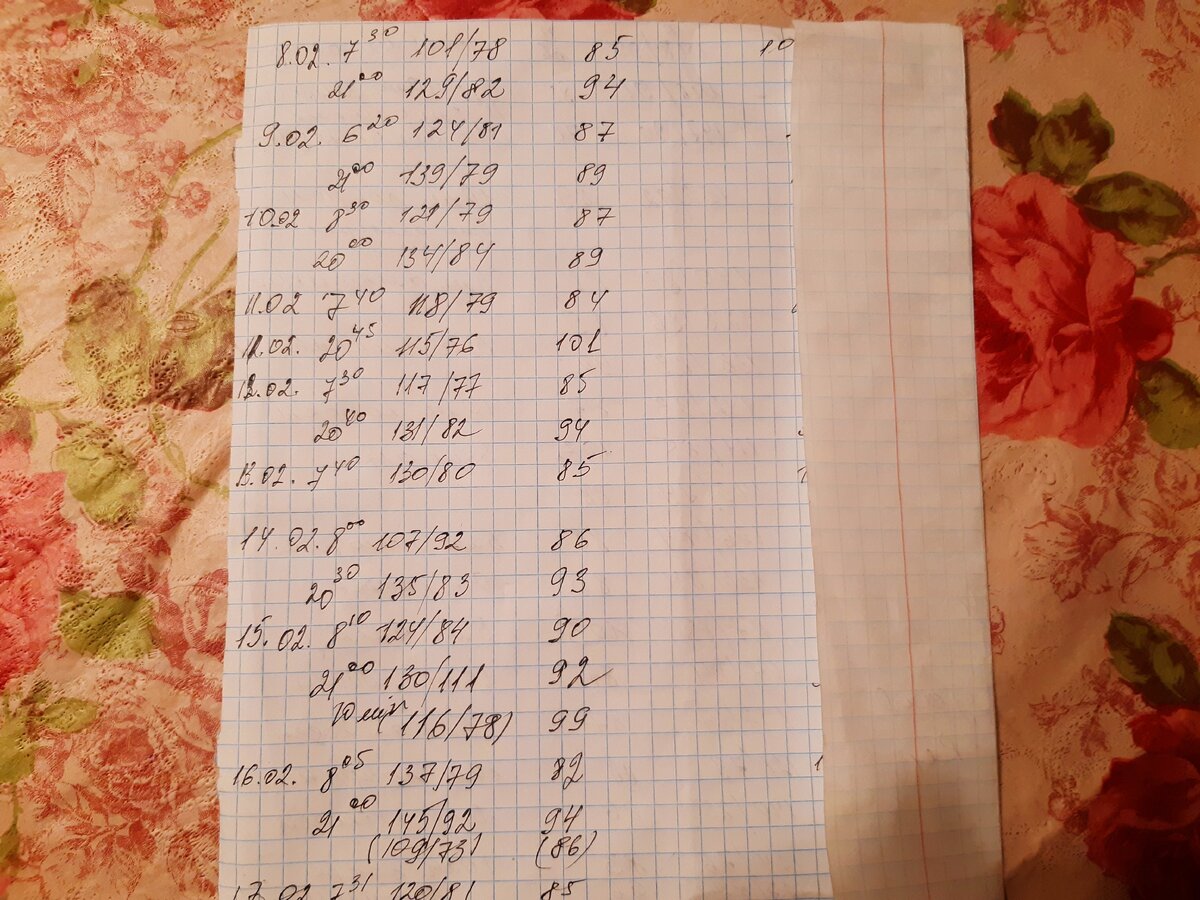 8.02. 7³⁰ 101/78 85 10
21⁰⁰ 129/82 94
9.02. 6²⁰ 124/81 87
21⁰⁰ 139/79 89
10.02 8³⁰ 121/79 87
20⁰⁰ 134/84 89
11.02 7⁴⁰ 118/79 84
11.02. 20⁴⁵ 115/76 101
12.02. 7³⁰ 117/77 85
20⁴⁰ 131/82 94
13.02. 7⁴⁰ 130/80 85
14.02. 8⁰⁰ 107/92 86
20³⁰ 135/83 93
15.02. 8¹⁰ 124/84 90
21⁰⁰ 130/111 92
116/78) 99
16.02. 8⁰⁵ 137/79 82
21⁰⁰ 145/92 94
(109/73) (86)
17.02 7³¹ 120/81 85